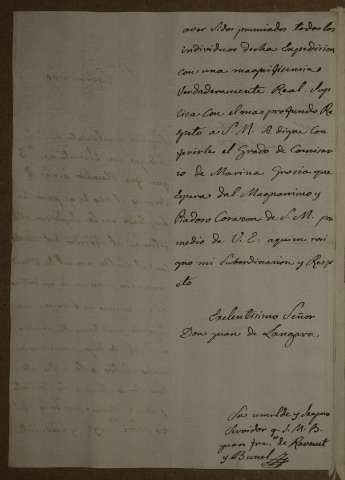 aver sidos premiados todos los
individuos de dha Expedicion
con una magnificencia
verdaderamente Real. Sup
lica con el mas profundo Re
speto a S. M. se digne con
ferirle el Grado de Comisar
io de Marina Gracia que
Espera del Magnanimo y
Piadoso Corazon de S. M. por
medio de V. E. a quien
mi Subordinacion y Resp
eto
Exelentissimo Señor
Don Juan de Langara.
Su umilde y seguro
Servidor q. S. M. B.
Juan Fra.co de
y